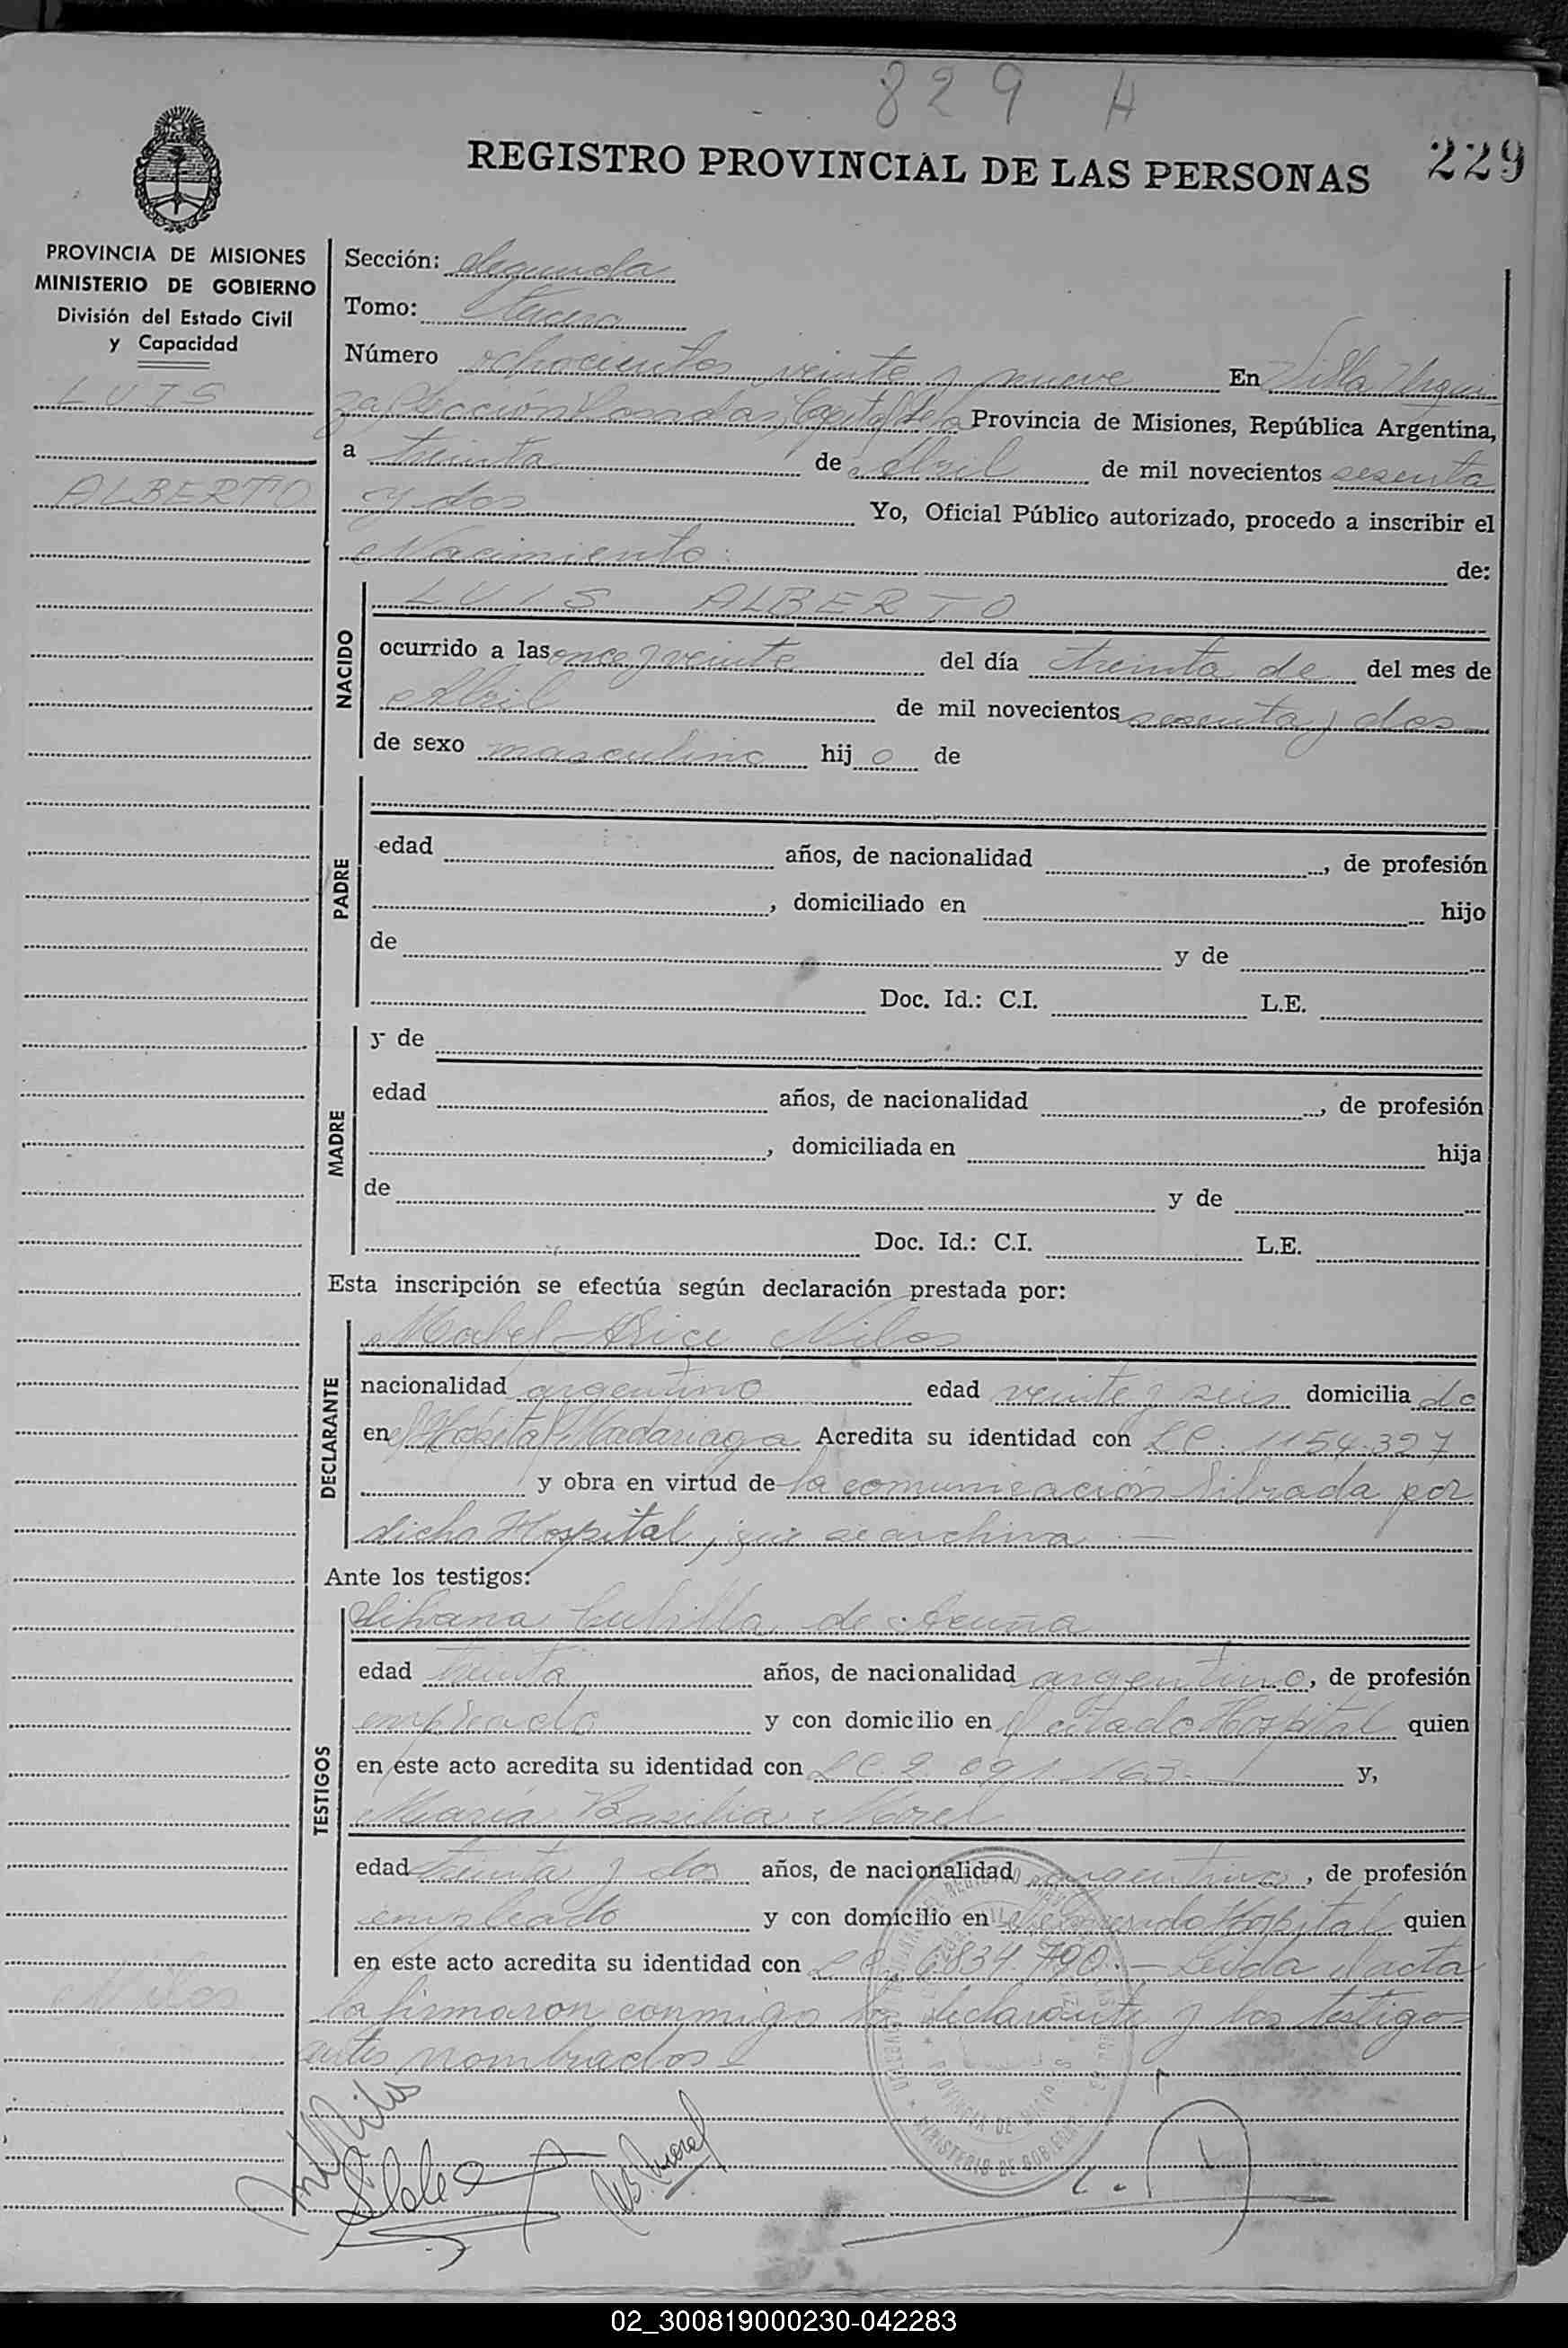 829 H
REGISTRO PROVINCIAL DE LAS PERSONAS 229
PROVINCIA DE MISIONES
MINISTERIO DE GOBIERNO
División del Estado Civil
y Capacidad
LUIS
ALBERTO
Sección: Segunda
Tomo: tercero
Número ochocientos veinte y nueve En Villa Urqui
za Sección Posadas, Capital de la Provincia de Misiones, República Argentina,
a treinta de Abril de mil novecientos sesenta
y dos Yo, Oficial Público autorizado, procedo a inscribir el
Nacimiento: de:
NACIDO
LUIS ALBERTO
ocurrido a las once y veinte del día treinta de del mes de
Abril de mil novecientos sesenta y dos
de sexo masculino hijo de
PADRE
edad años, de nacionalidad , de profesión
, domiciliado en hijo
de y de
Doc. Id.: C.I. L.E.
MADRE
y de
edad años, de nacionalidad , de profesión
, domiciliada en hija
de y de
Doc. Id.: C.I. L.E.
Esta inscripción se efectúa según declaración prestada por:
DECLARANTE
Mabel Alice Milos
nacionalidad argentino edad veinte y seis domiciliado
en el Hospital Madariaga Acredita su identidad con LC. 1154.327
y obra en virtud de la comunicación librada por
dicho Hospital, que se archiva.—
Ante los testigos:
TESTIGOS
Silvana Cubilla de Acuña
edad treinta años, de nacionalidad argentino, de profesión
empleado y con domicilio en el citado Hospital quien
en este acto acredita su identidad con LC. 2.091.163.— y,
María Basilia Morel
edad treinta y dos años, de nacionalidad argentino, de profesión
empleado y con domicilio en el Hospital quien
en este acto acredita su identidad con L.C. 6834.790.— Leída el acta
la firmaron conmigo la declarante y los testigos
antes nombrados
Milos
M.B. Morel
PROVINCIA DE MISIONES
MINISTERIO DE GOBIERNO
02_300819000230-042283